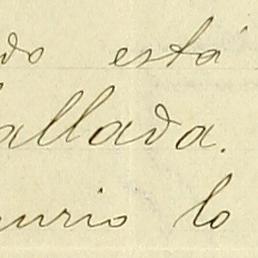 do está
allada.
urio lo